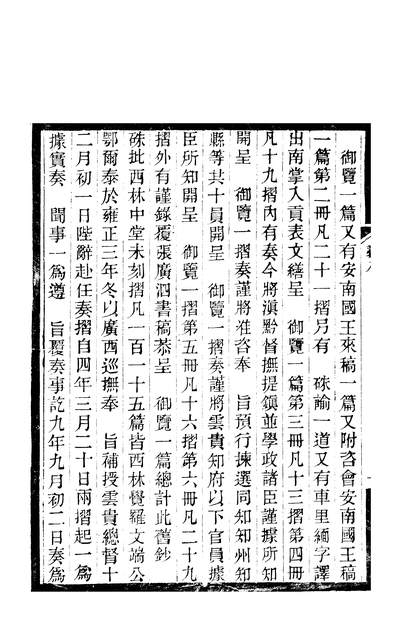 御覽一篇又有安南國王來稿一篇又附咨會安南國王稿
一篇第二冊凡二十一摺另有　硃諭一道又有車里緬字譯
出南掌入貢表文繕呈　御覽一篇第三冊凡十三摺第四冊
凡十九摺內有奏今將滇黔督撫提鎭並學政諸臣謹據所知
開呈　御覽一摺奏謹將准咨奉　旨預行揀選同知知州知
縣等共十員開呈　御覽一摺奏謹將雲貴知府以下官員據
臣所知開呈　御覽一摺第五冊凡十六摺第六冊凡二十九
摺外有謹錄覆張廣泗書稿恭呈　御覽一篇總計此舊鈔
硃批西林中堂未刻摺凡一百一十五篇皆西林覺羅文端公
鄂爾泰於雍正三年冬以廣西巡撫奉　旨補授雲貴總督十
二月初一日陛辭赴任奏摺自四年三月二十日兩摺起一爲
據實奏　聞事一爲遵　旨覆奏事訖九年九月初二日奏爲